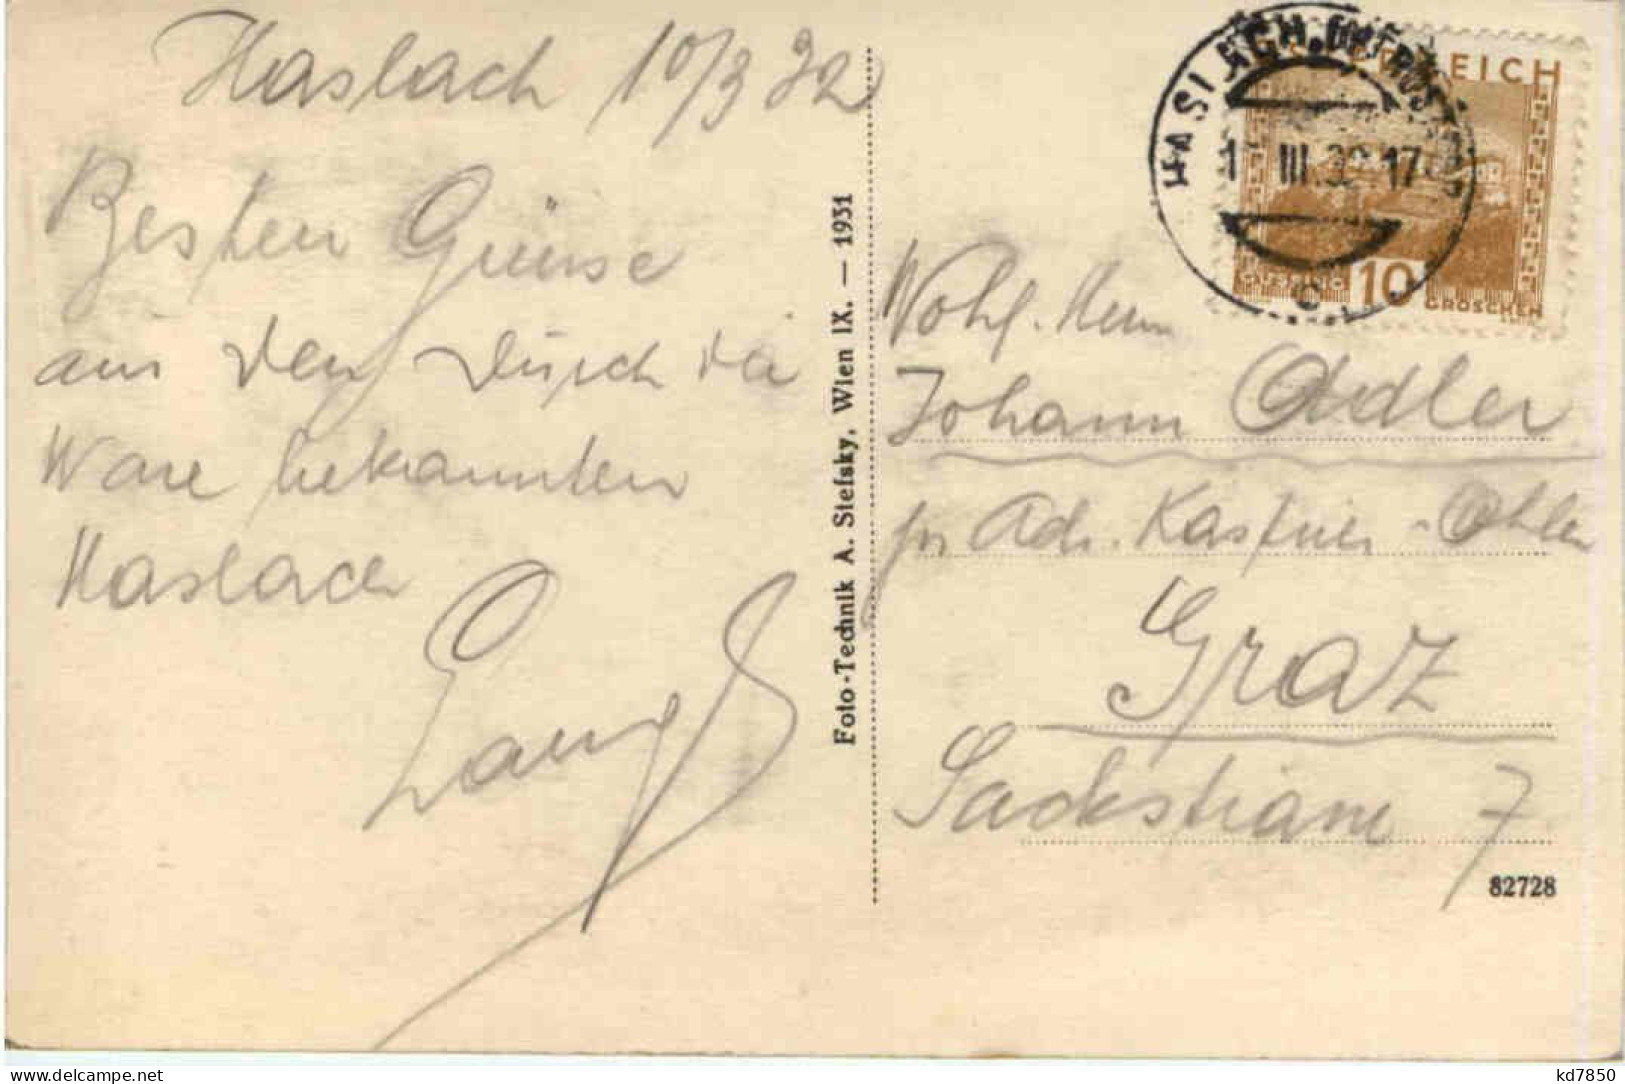 Haslach 10/3 32
Besten Grüsse
aus den durch die
Ware bekannten
Haslach
Foto-Technik A. Stefsky, Wien IX. — 1931
HASLACH, OBERÖST
III. 32 17
REICH
10
GROSCHEN
Wohl. Herrn
Johann Adler
pr Adr. Kastner-Öhler
Graz
Sackstrasse 7
82728
kd7850